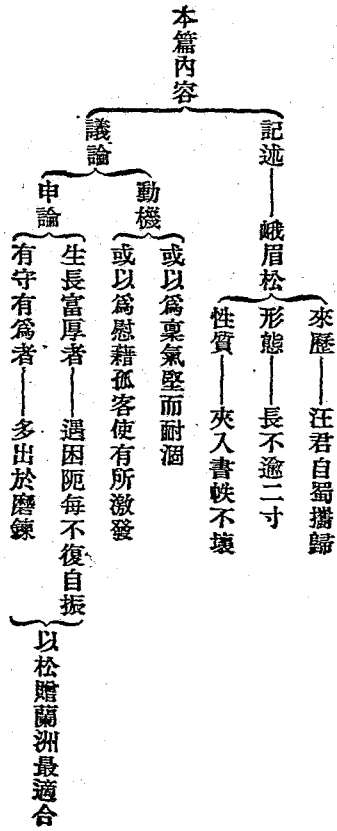 本篇內容
記述——峨眉松
來歷——汪君自蜀攜歸
形態——長不逾二寸
性質——夾入書帙不壞
議論
動機
或以爲稟氣堅而耐涸
或以爲慰藉孤客使有所激發
申論
生長富厚者——遇困阨每不復自振
有守有爲者——多出於磨鍊
以松贈蘭洲最適合